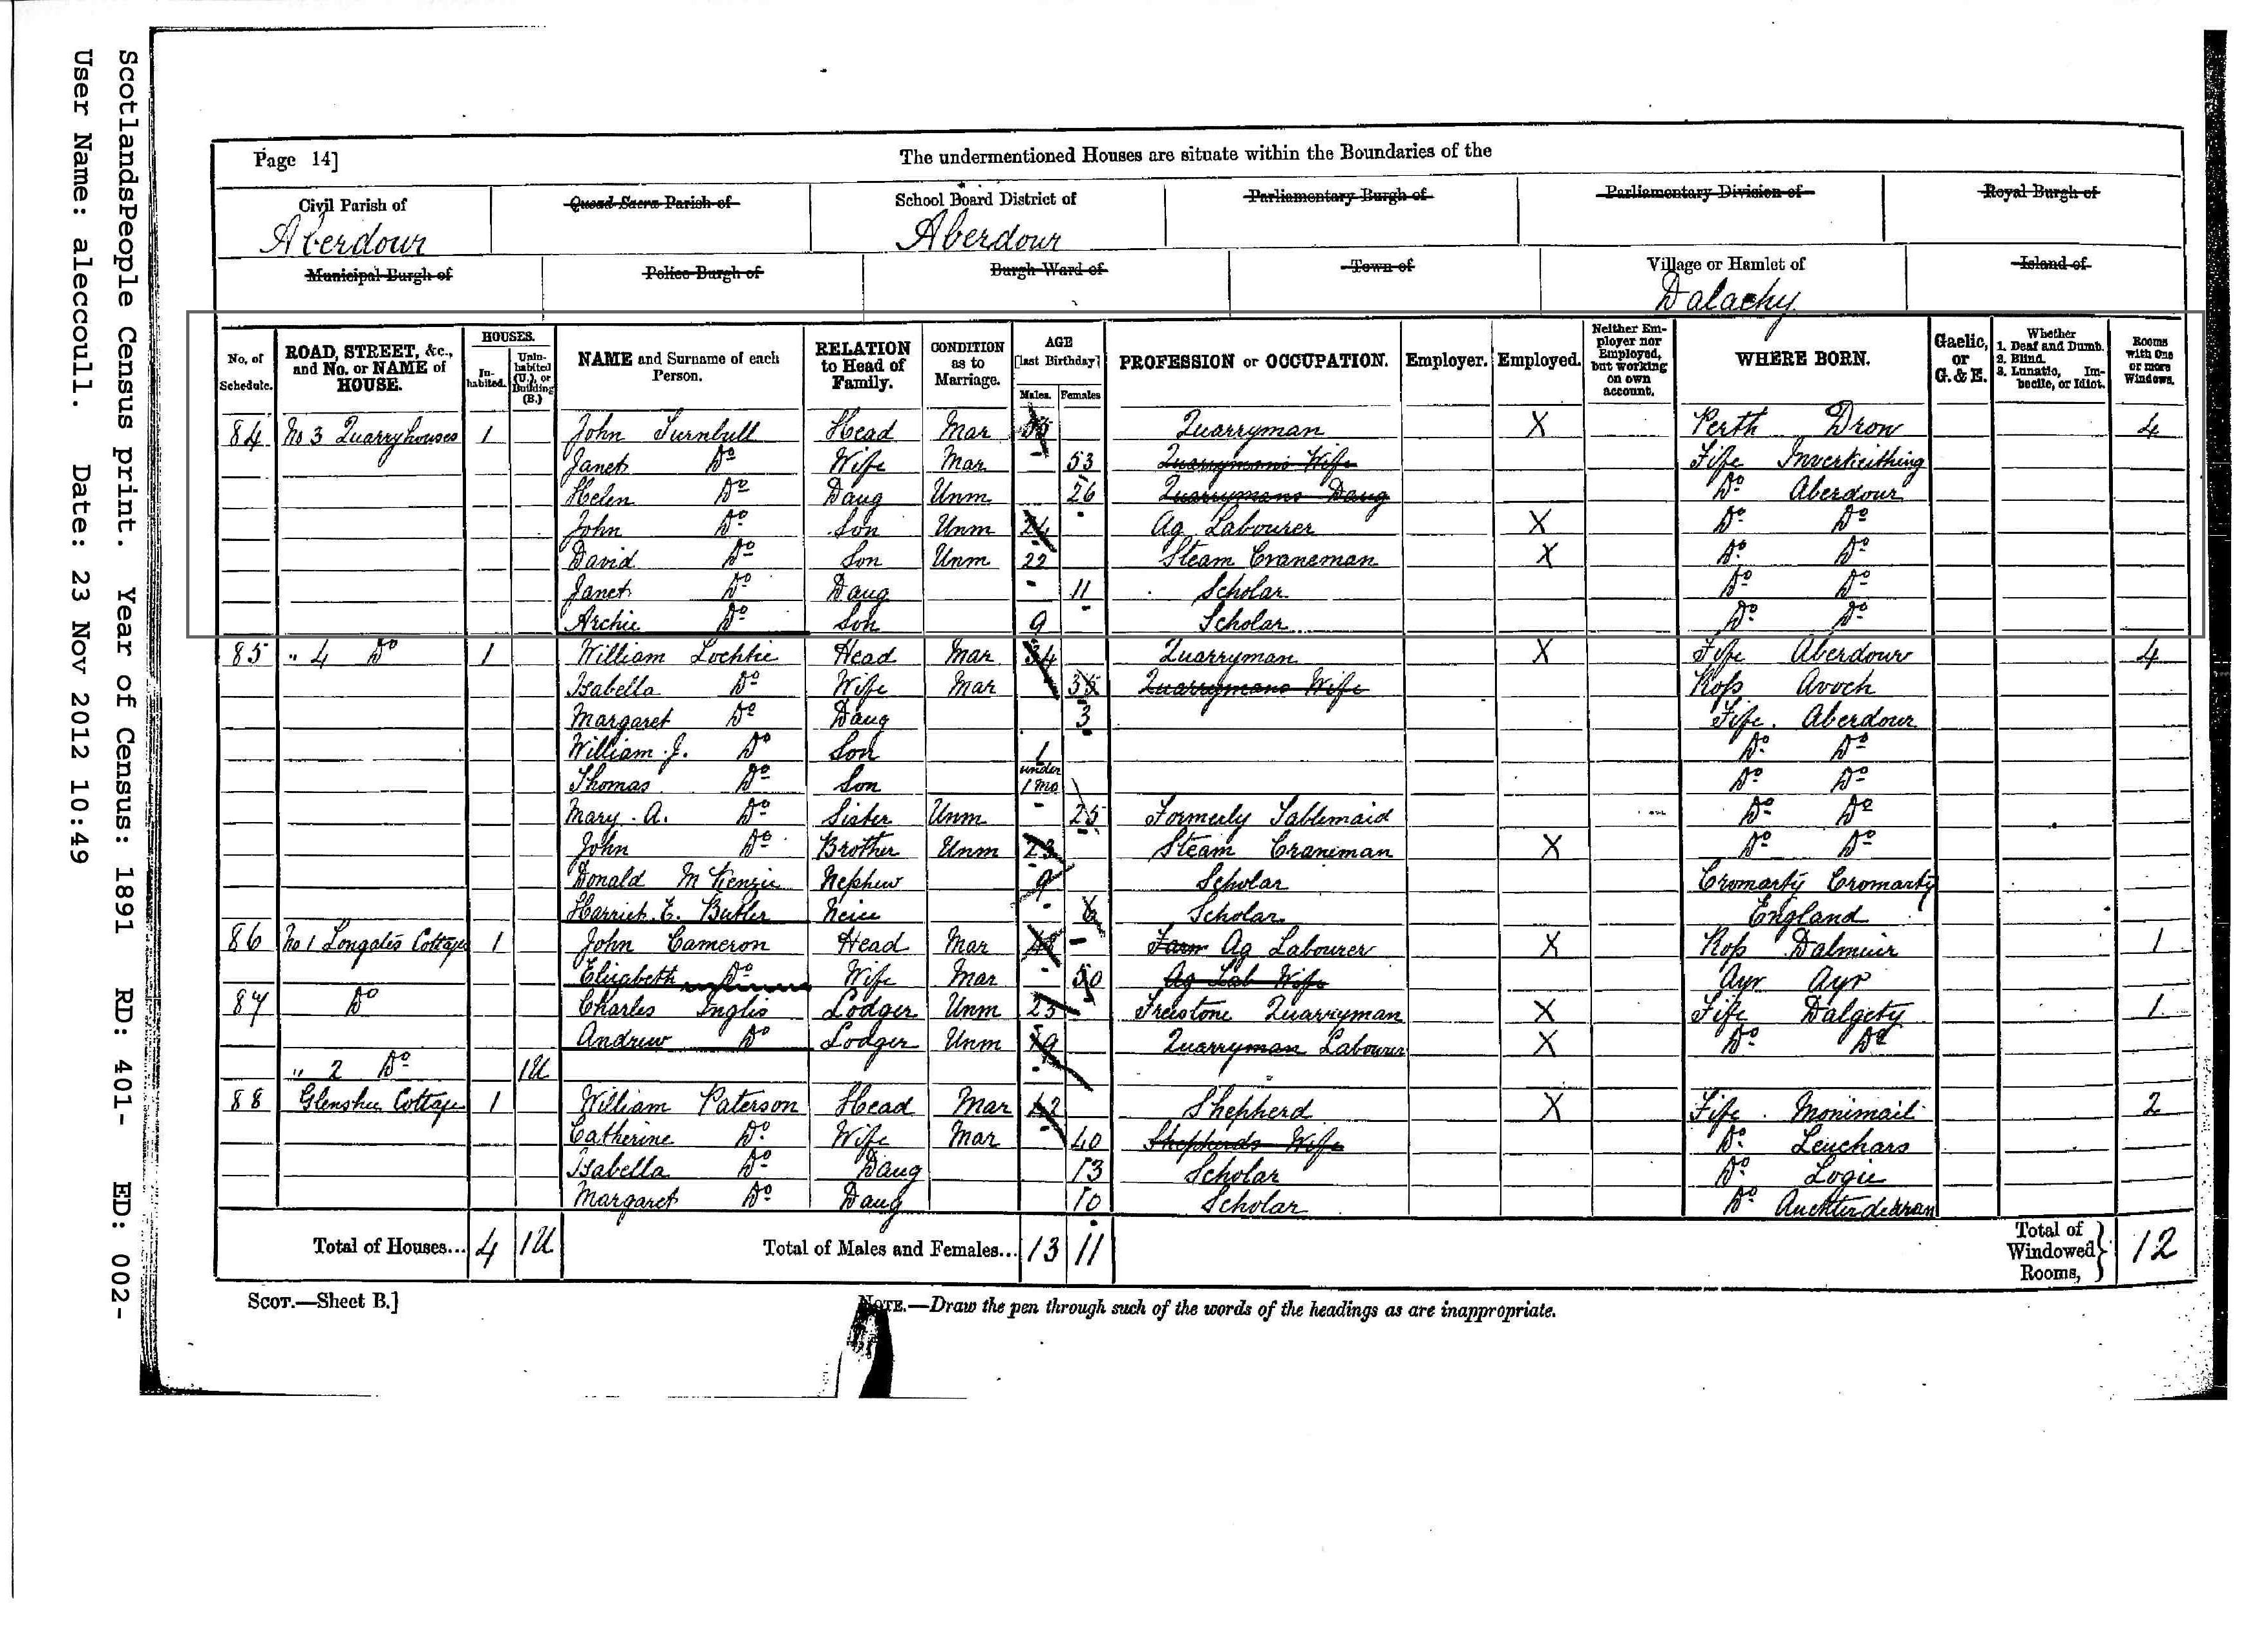 ScotlandsPeople Census print. Year of Census: 1891 RD: 401- ED: 002-
User Name: aleccoull. Date: 23 Nov 2012 10:49
Page 14] The undermentioned Houses are situate within the Boundaries of the
Civil Parish of Quoad Sacra Parish of School Board District of Parliamentary Burgh of Parliamentary Division of Royal Burgh of
Aberdour Aberdour
Municipal Burgh of Police Burgh of Burgh Ward of Town of Village or Hamlet of Island of
Dalachy
No. of Schedule. ROAD, STREET, &c., and No. or NAME of HOUSE. HOUSES. Inhabited. Uninhabited (U.), or Building (B.) NAME and Surname of each Person. RELATION to Head of Family. CONDITION as to Marriage. AGE [last Birthday] Males. Females PROFESSION or OCCUPATION. Employer. Employed. Neither Employer nor Employed, but working on own account. WHERE BORN. Gaelic, or G. & E. Whether 1. Deaf and Dumb. 2. Blind. 3. Lunatic, Imbecile, or Idiot. Rooms with One or more Windows.
84 No 3 Quarryhouses 1 John Turnbull Head Mar 55 Quarryman X Perth Dron 4
Janet Do Wife Mar 53 Quarrymans Wife Fife Inverkeithing
Helen Do Daug Unm 26 Quarrymans Daug Do Aberdour
John Do Son Unm 24 Ag Labourer X Do Do
David Do Son Unm 22 Steam Craneman X Do Do
Janet Do Daug 11 Scholar Do Do
Archie Do Son 9 Scholar Do Do
85 " 4 Do 1 William Lochtie Head Mar 34 Quarryman X Fife Aberdour 4
Isabella Do Wife Mar 35 Quarrymans Wife Ross Avoch
Margaret Do Daug 3 Fife Aberdour
William J. Do Son 1 Do Do
Thomas Do Son under 1 mo Do Do
Mary A. Do Sister Unm 25 Formerly Tablemaid Do Do
John Do Brother Unm 23 Steam Craneman X Do Do
Donald McKenzie Nephew 9 Scholar Cromarty Cromarty
Harriet E. Butler Neice 6 Scholar England
86 No 1 Longates Cottages 1 John Cameron Head Mar Farm Ag Labourer X Ross Dalmuir 1
Elizabeth Do Wife Mar 50 Ag Lab Wife Ayr Ayr
87 Do Charles Inglis Lodger Unm 25 Freestone Quarryman X Fife Dalgety 1
Andrew Do Lodger Unm 19 Quarryman Labourer X Do Do
" 2 Do 1U
88 Glenshee Cottage 1 William Paterson Head Mar 42 Shepherd X Fife Monimail 2
Catherine Do Wife Mar 40 Shepherds Wife Do Leuchars
Isabella Do Daug 13 Scholar Do Logie
Margaret Do Daug 10 Scholar Do Auchterderran
Total of Houses... 4 1U Total of Males and Females... 13 11 Total of Windowed Rooms, 12
SCOT.—Sheet B.] NOTE.—Draw the pen through such of the words of the headings as are inappropriate.